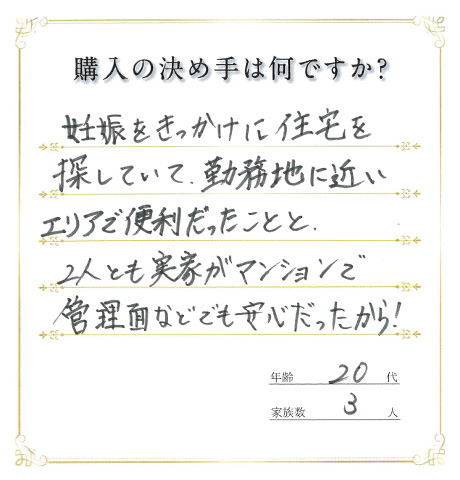 購入の決め手は何ですか?
妊娠をきっかけに住宅を
探していて、勤務地に近い
エリアで便利だったことと、
2人とも実家がマンションで
管理面などでも安心だったから!
年齢 20 代
家族数 3 人